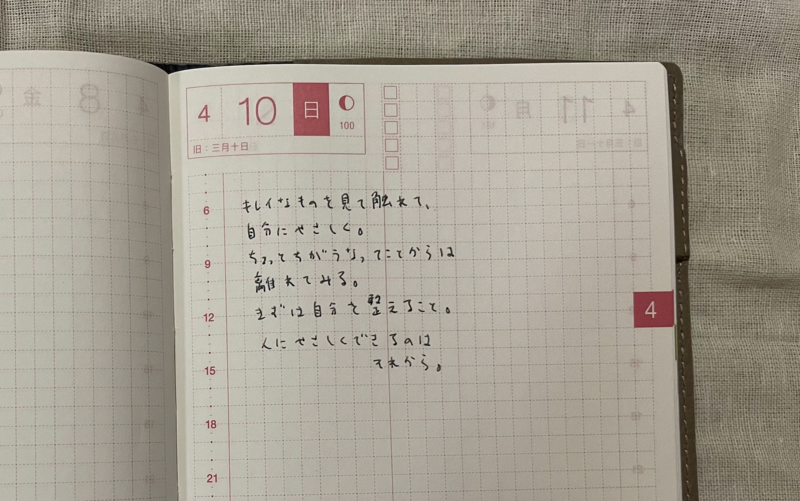 4 10 日
100
旧：三月十日
キレイなものを見て触れて、
自分にやさしく。
ちょっとちがうなってことからは
離れてみる。
まずは自分を整えること。
人にやさしくできるのは
それから。
6
9
12
15
18
21
4